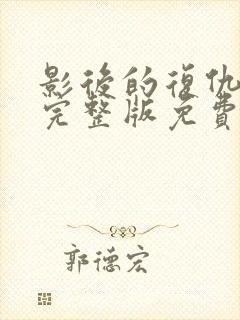 影後的復仇
完整版免費
郭德宏